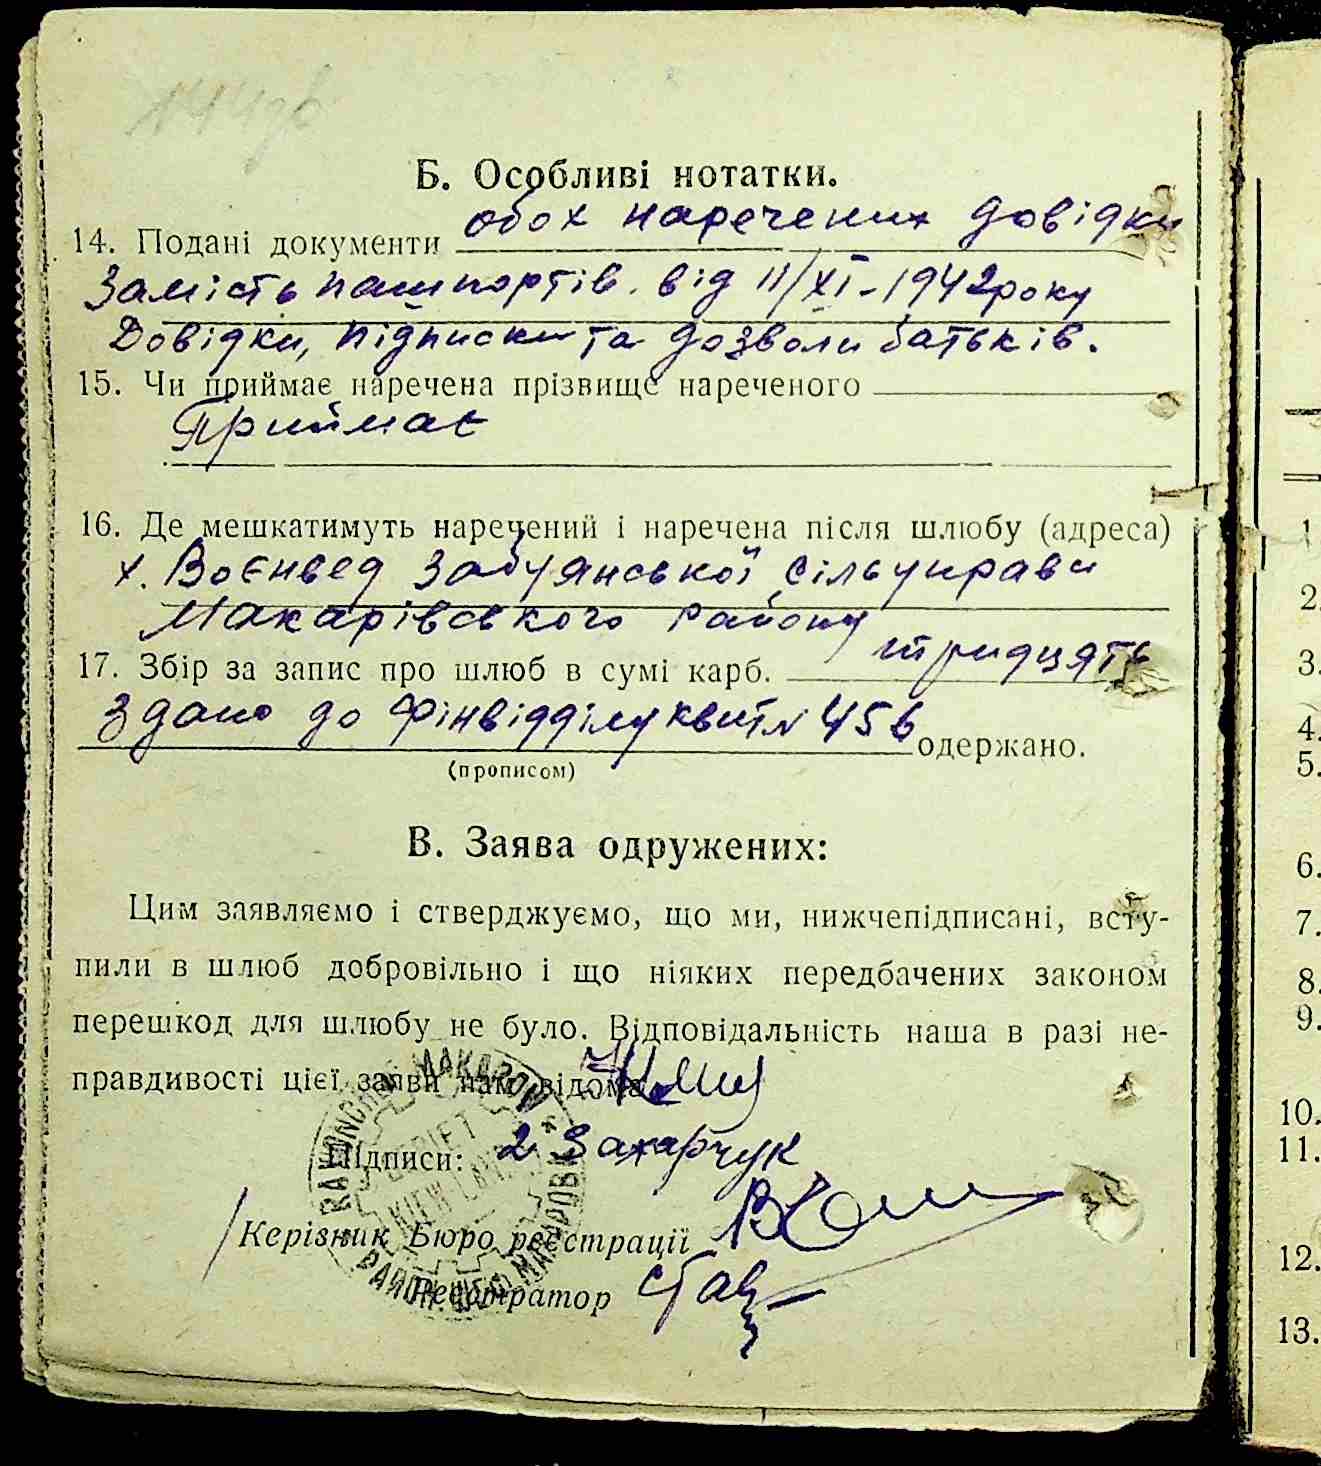 144 зв
Б. Особливі нотатки.
14. Подані документи обох наречених довідки
замість пашпортів. від 11/XI-1942 року
Довідки, підписки та дозволи батьків.
15. Чи приймає наречена прізвище нареченого
Приймає
16. Де мешкатимуть наречений і наречена після шлюбу (адреса)
х. Воєнвед Забуянської сільуправи
Макарівського району
17. Збір за запис про шлюб в сумі карб. тридцять
Здано до Фінвідділу квит № 456 одержано.
(прописом)
В. Заява одружених:
Цим заявляємо і стверджуємо, що ми, нижчепідписані, всту-
пили в шлюб добровільно і що ніяких передбачених законом
перешкод для шлюбу не було. Відповідальність наша в разі не-
правдивості цієї заяви нам відома.
Підписи: 2 Захарчук
Керізник Бюро реєстрації
Реєстратор
RAYONCHEF MAKAROW
1
2.
3.
4.
5.
6.
7.
8.
9.
10.
11.
12.
13.